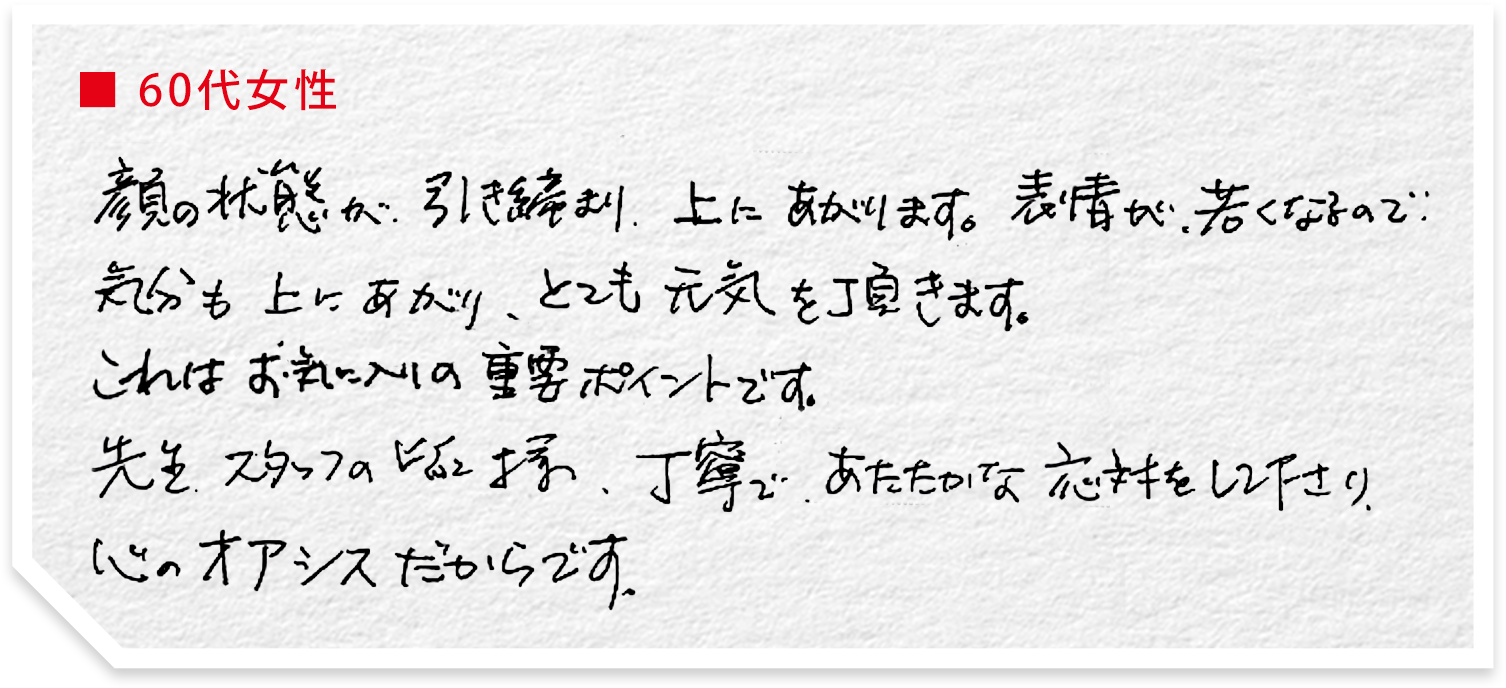 ■ 60代女性
顔の状態が、引き締まり、上にあがります。表情が、若くなるので、
気分も上にあがり、とても元気を頂きます。
これはお気に入りの重要ポイントです。
先生、スタッフの皆様、丁寧で、あたたかな応対をして下さり、
心のオアシスだからです。